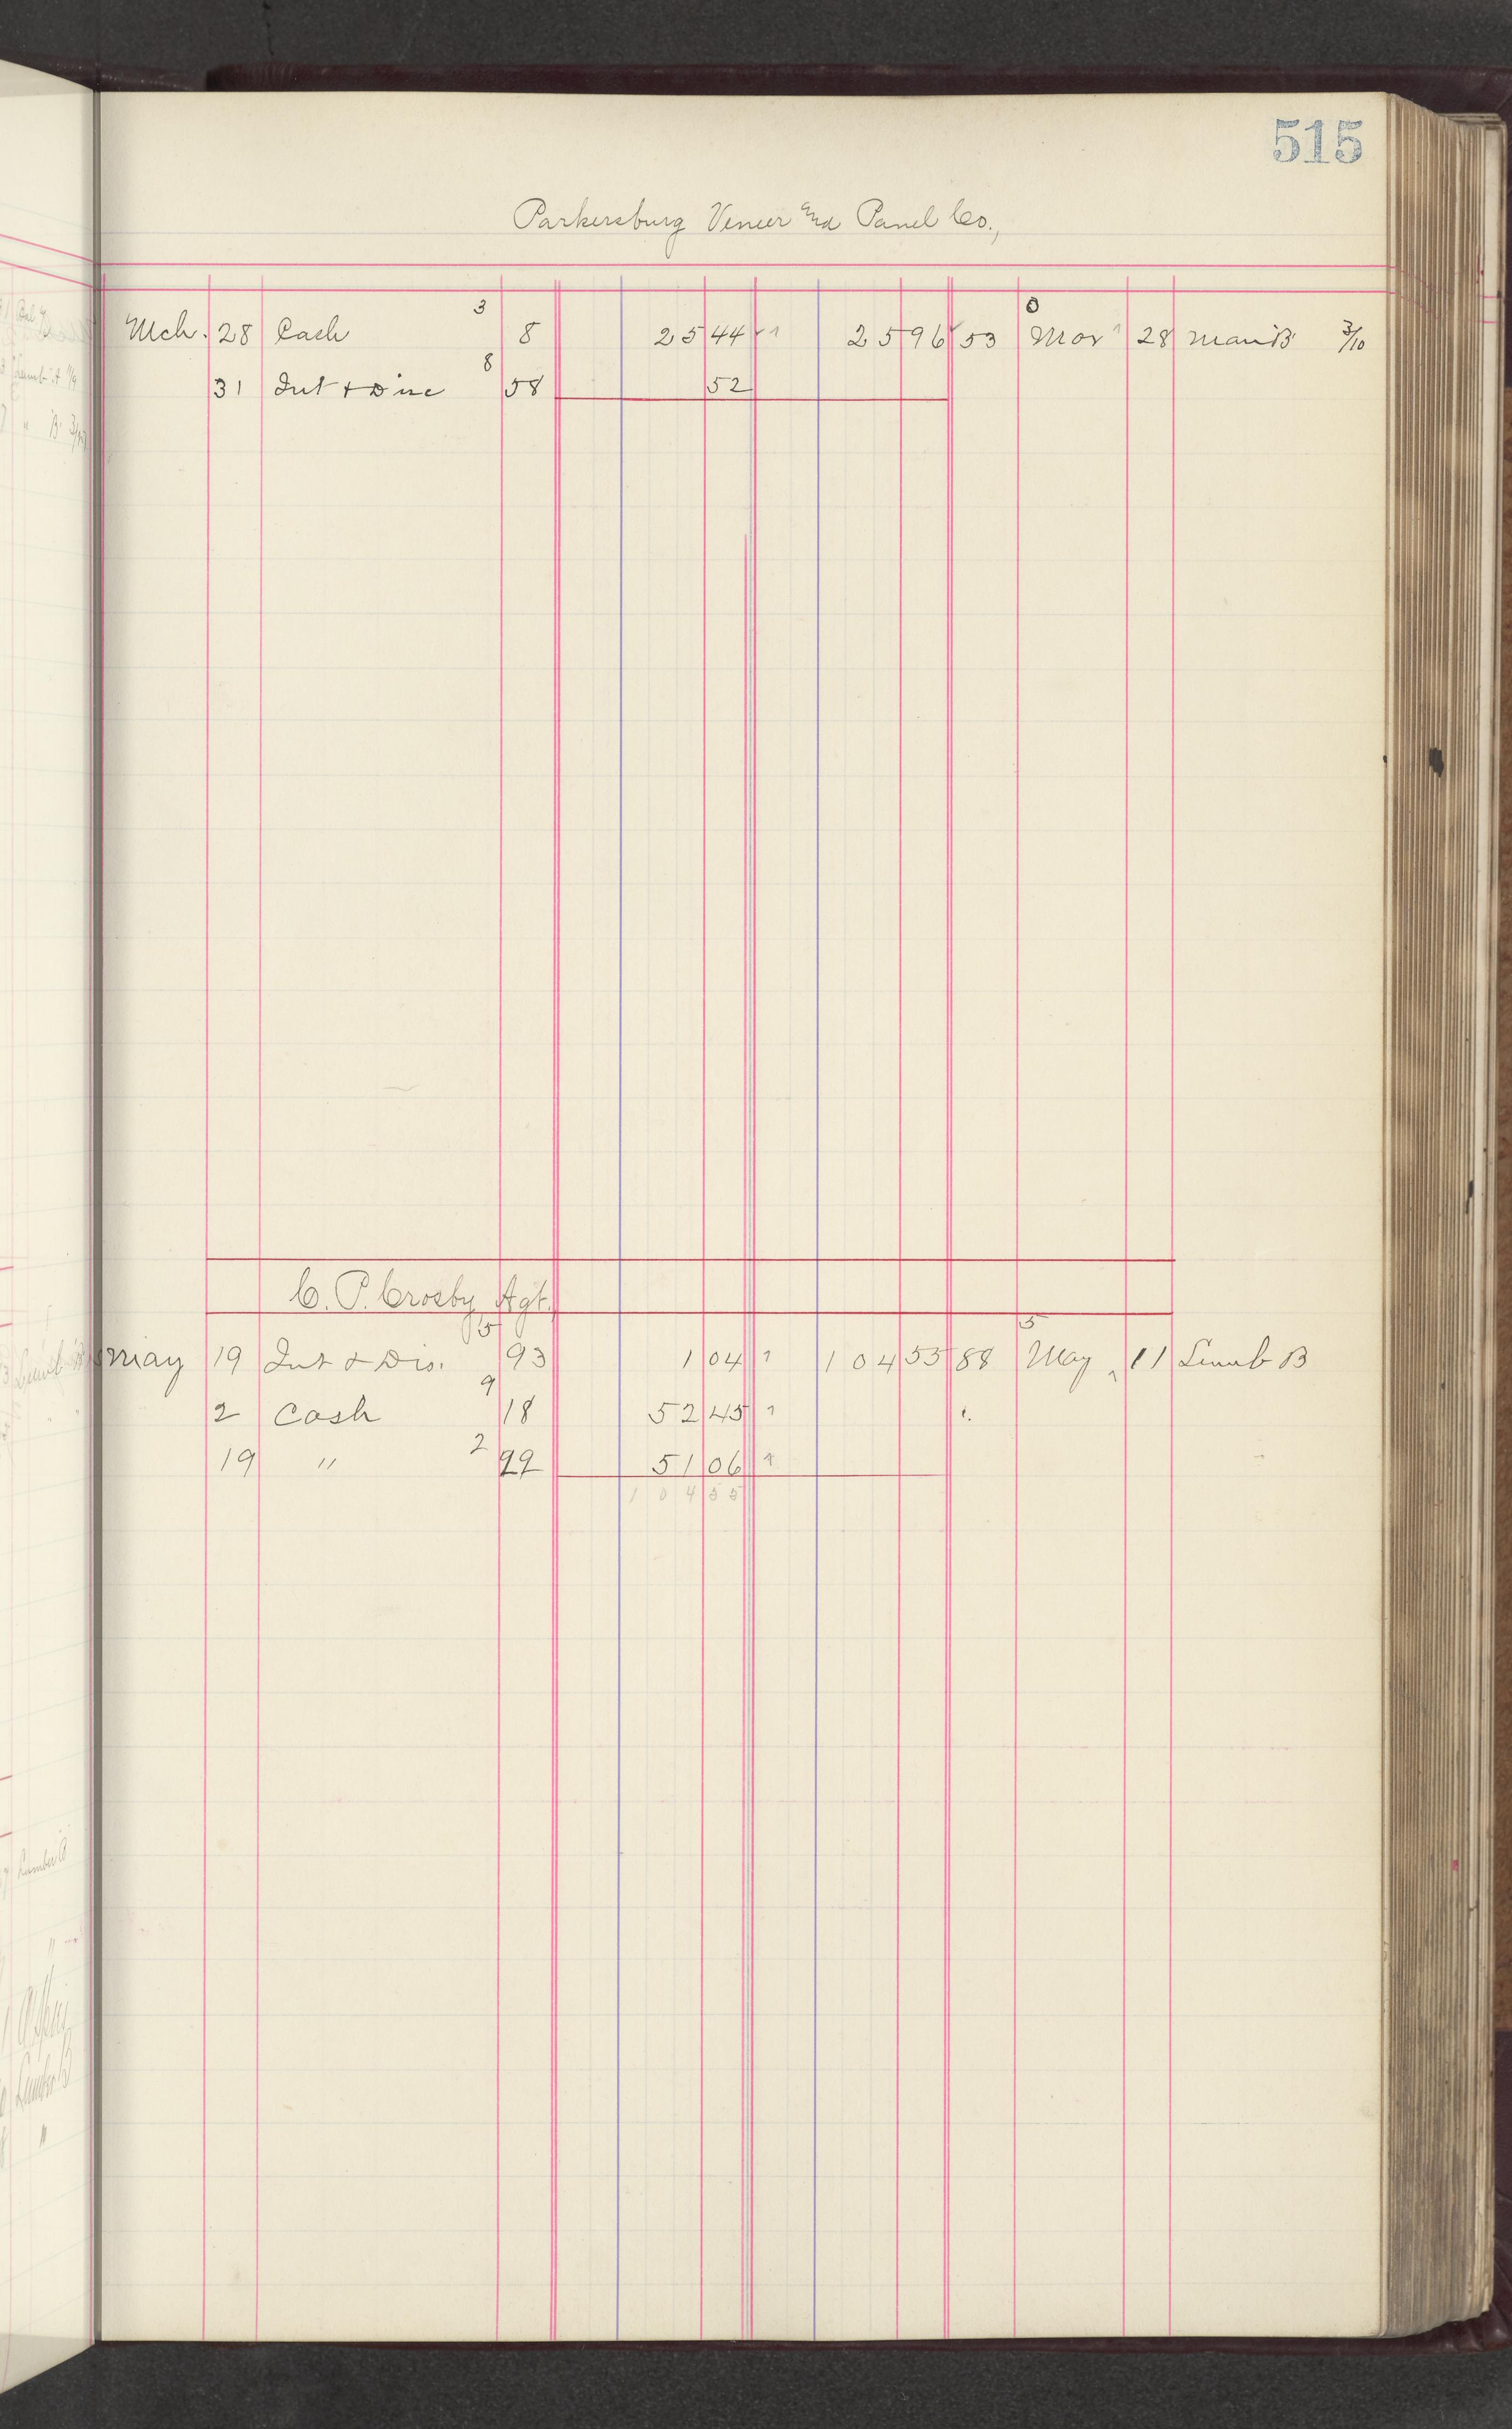 515
Parkersburg Veneer and Panel Co.,
3 0
Mch. 28 Cash 8 25 44 25 96 53 Mar 28 Man B 3/10
8
31 Int + Disc 58 52
C. P. Crosby Agt.
5 5
May 19 Int + Dis. 93 1 04 104 55 88 May 11 Lumb B
9
2 Cash 18 52 45
2
19 " 92 51 06
104 55